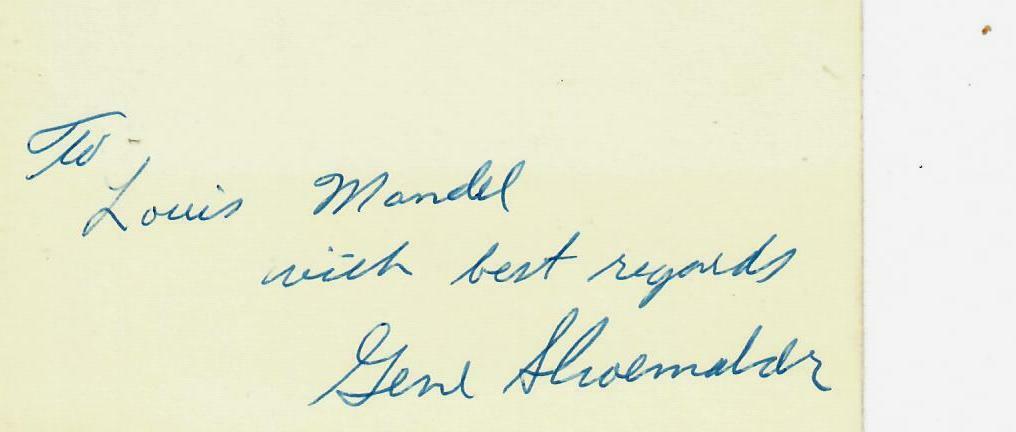 To
Louis Mandel
with best regards
Gene Shoemaker